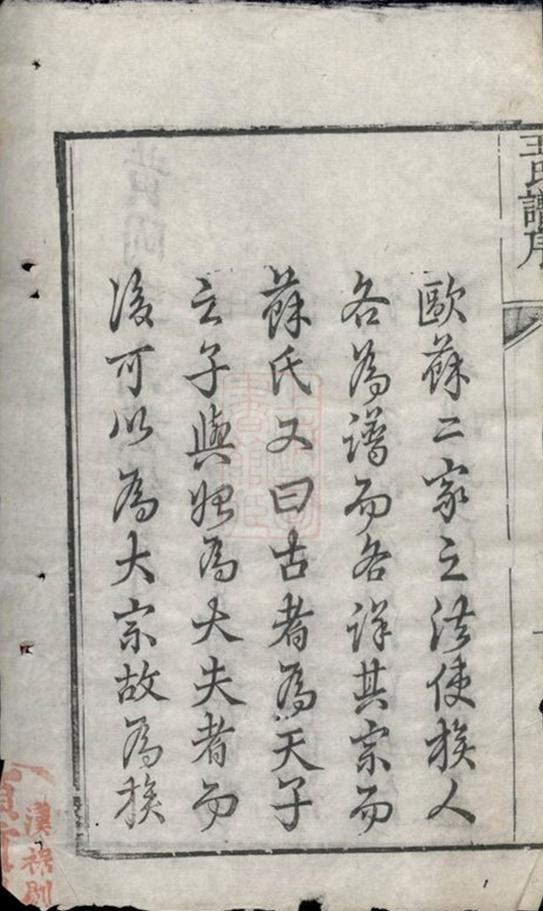 王氏譜序
歐蘇二家之法使族人
各為譜而各詳其宗而
蘇氏又曰古者為天子
之子與始為大夫者而
後可以為大宗故為族